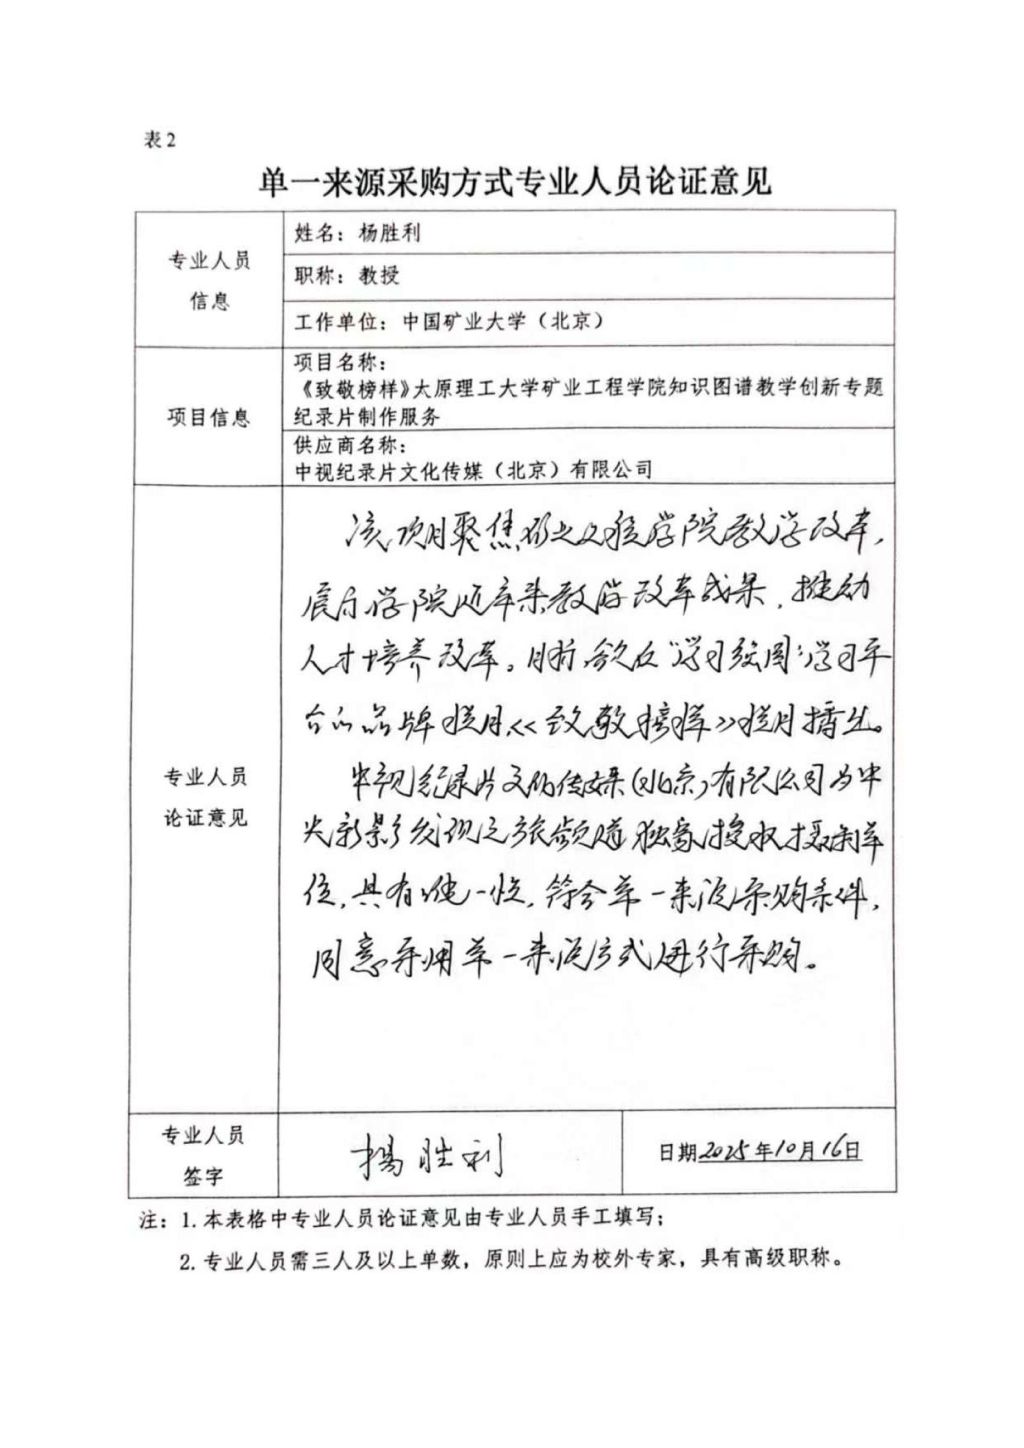 表2
单一来源采购方式专业人员论证意见
专业人员
信息
姓名：杨胜利
职称：教授
工作单位：中国矿业大学（北京）
项目信息
项目名称：
《致敬榜样》大原理工大学矿业工程学院知识图谱教学创新专题
纪录片制作服务
供应商名称：
中视纪录片文化传媒（北京）有限公司
专业人员
论证意见
该项目聚焦矿业工程学院教学改革，
展示学院近年来教学改革成果，推动
人才培养改革。目前 "学习强国"学习平
台的品牌栏目《致敬榜样》栏目播出。
中视纪录片文化传媒(北京)有限公司为中
央新影发现之旅频道独家授权摄制单
位，具有唯一性，符合单一来源采购条件，
同意采用单一来源方式进行采购。
专业人员
签字
杨胜利
日期2025年10月16日
注：1.本表格中专业人员论证意见由专业人员手工填写；
2.专业人员需三人及以上单数，原则上应为校外专家，具有高级职称。